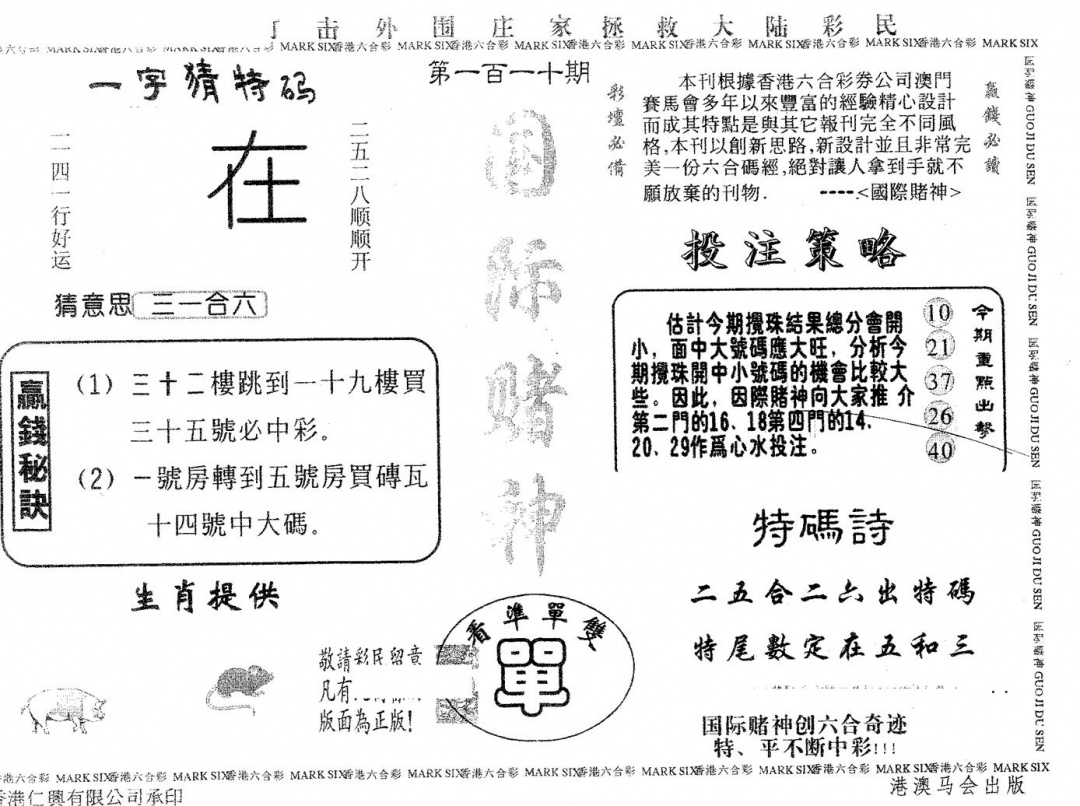 击外围庄家拯救大陆彩民
MARK SIX香港六合彩 MARK SIX香港六合彩 MARK SIX香港六合彩 MARK SIX香港六合彩 MARK SIX香港六合彩 MARK SIX香港六合彩 MARK SIX香港六合彩 MARK SIX香港六合彩 MARK SIX
一字猜特码
二五二八顺顺开
在
一一四一行好运
猜意思 三一合六
赢錢秘訣
(1) 三十二樓跳到一十九樓買
三十五號必中彩。
(2) 一號房轉到五號房買磚瓦
十四號中大碼。
生肖提供
第一百一十期
国际赌神
敬請彩民留意
凡有
版面為正版!
看準單雙
單
彩壇必備
本刊根據香港六合彩券公司澳門
賽馬會多年以來豐富的經驗精心設計
而成其特點是與其它報刊完全不同風
格,本刊以創新思路,新設計並且非常完
美一份六合碼經,絕對讓人拿到手就不
願放棄的刊物. ----<國際賭神>
贏錢必讀
投注策略
估計今期攪珠結果總分會開
小，面中大號碼應大旺，分析今
期攪珠開中小號碼的機會比較大
些。因此，因際賭神向大家推 介
第二門的16、18第四門的14.
20、29作爲心水投注。
10
21
37
26
40
今期重點出擊
特碼詩
二五合二六出特碼
特尾數定在五和三
国际赌神创六合奇迹
特、平不断中彩!!!
国际赌神 GUO JI DU SEN 国际赌神 GUO JI DU SEN 国际赌神 GUO JI DU SEN 国际赌神 GUO JI DU SEN 国际赌神 GUO JI DU SEN
香港六合彩 MARK SIX香港六合彩 MARK SIX香港六合彩 MARK SIX香港六合彩 MARK SIX香港六合彩 MARK SIX香港六合彩 MARK SIX香港六合彩 MARK SIX香港六合彩 MARK SIX香港六合彩 MARK SIX
香港仁興有限公司承印
港澳马会出版